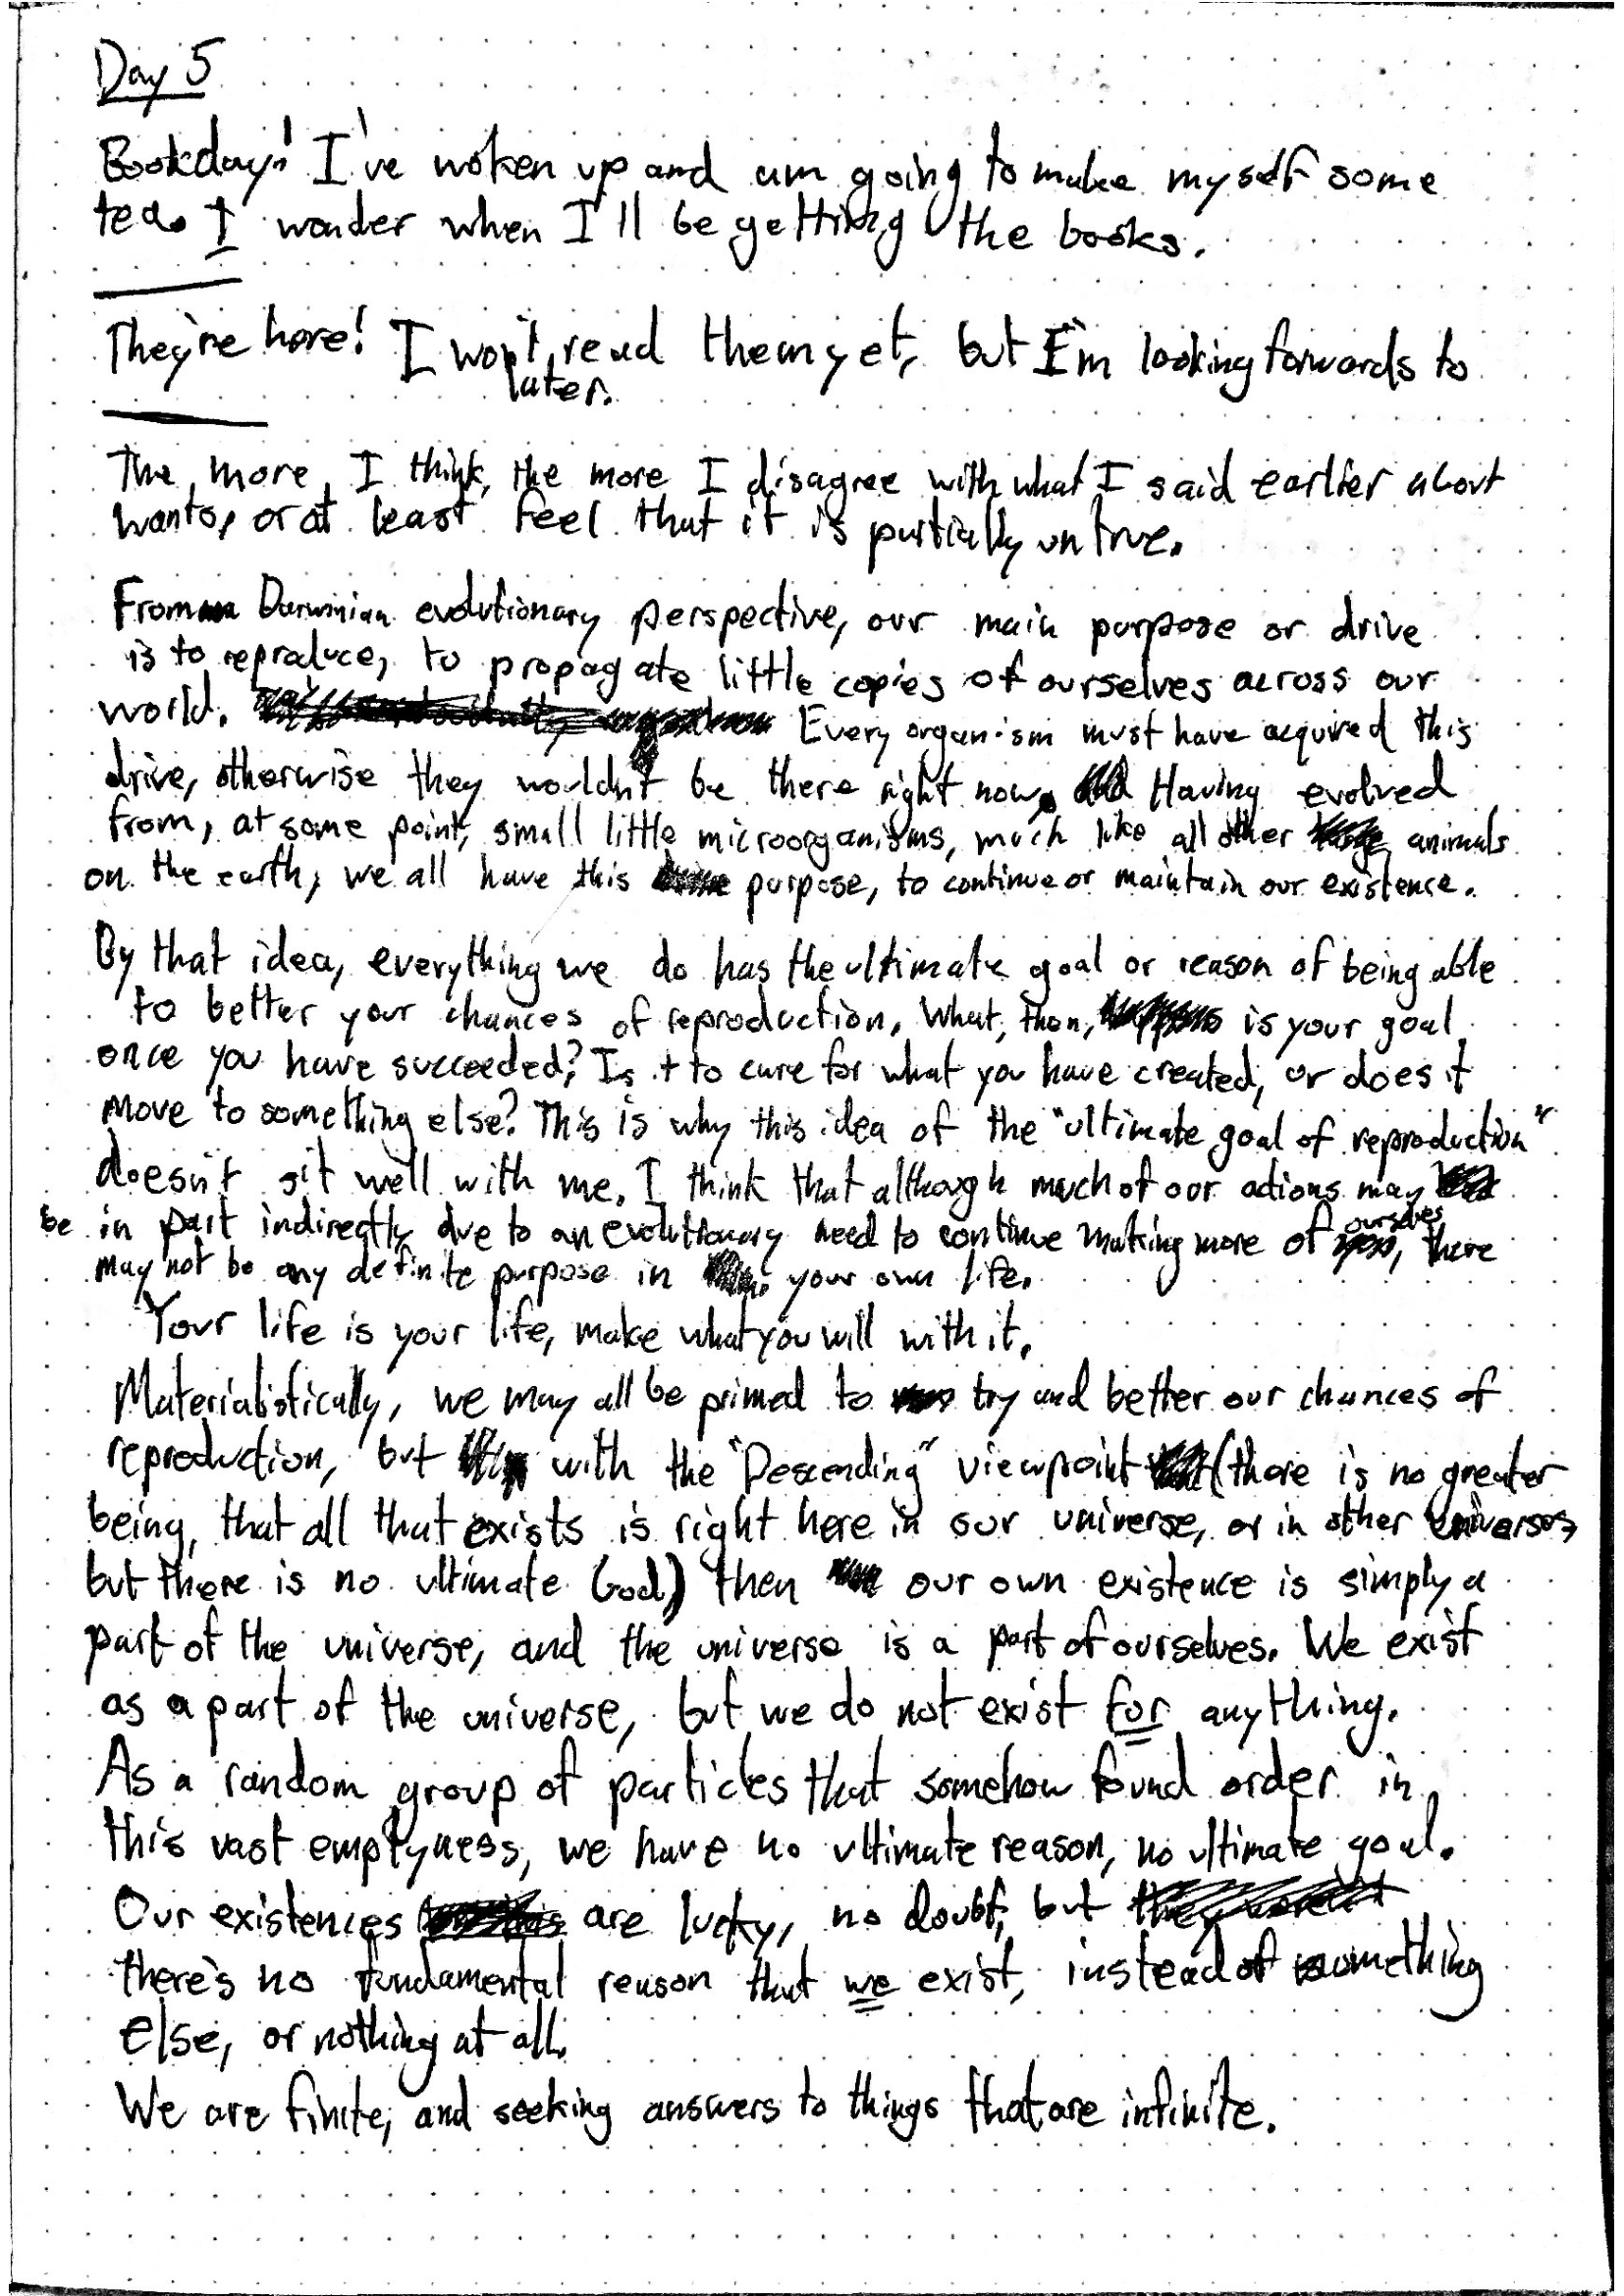 Day 5
Bookday! I've woken up and am going to make myself some
tea. I wonder when I'll be getting the books.
They're here! I won't read them yet, but I'm looking forwards to
later.
The more I think, the more I disagree with what I said earlier about
wants, or at least feel that it is partially untrue.
From Darwinian evolutionary perspective, our main purpose or drive
is to reproduce, to propagate little copies of ourselves across our
world. Every organism must have acquired this
drive, otherwise they wouldn't be there right now. Having evolved
from, at some point, small little microorganisms, much like all other animals
on the earth, we all have this purpose, to continue or maintain our existence.
By that idea, everything we do has the ultimate goal or reason of being able
to better your chances of reproduction. What, then, is your goal
once you have succeeded? Is it to care for what you have created, or does it
move to something else? This is why this idea of the "ultimate goal of reproduction"
doesn't sit well with me. I think that although much of our actions may
be in part indirectly due to an evolutionary need to continue making more of ourselves, there
may not be any definite purpose in your own life.
Your life is your life, make what you will with it.
Materialistically, we may all be primed to try and better our chances of
reproduction, but with the "Descending" viewpoint (there is no greater
being, that all that exists is right here in our universe, or in other universes,
but there is no ultimate God) then our own existence is simply a
part of the universe, and the universe is a part of ourselves. We exist
as a part of the universe, but we do not exist for anything.
As a random group of particles that somehow found order in
this vast emptyness, we have no ultimate reason, no ultimate goal.
Our existences are lucky, no doubt, but
there's no fundamental reason that we exist, instead of something
else, or nothing at all.
We are finite, and seeking answers to things that are infinite.